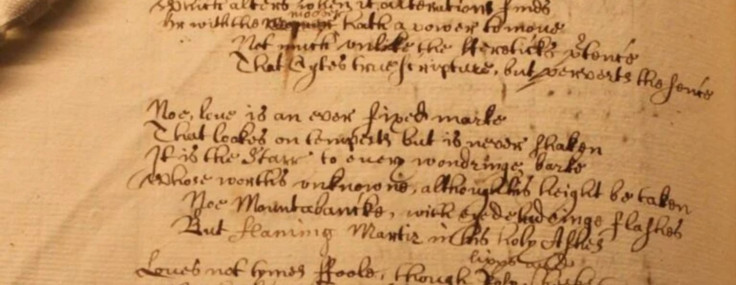 Which alters when it alterations finds
Or with the mover hath a power to move
Not much unlike the Hereticks ptence
That Cytes true scripture, but perverts the sence
Noe, love is an ever fixed marke
That lookes on tempests but is never shaken
It is the Starr to every wondringe barke
Whose worths unknowne, although his height be taken
Noe Mountabancke, with eyedeludeinge flashes
But flaming Martir in his holy Ashes
Loves not tymes ffoole, though lipps and